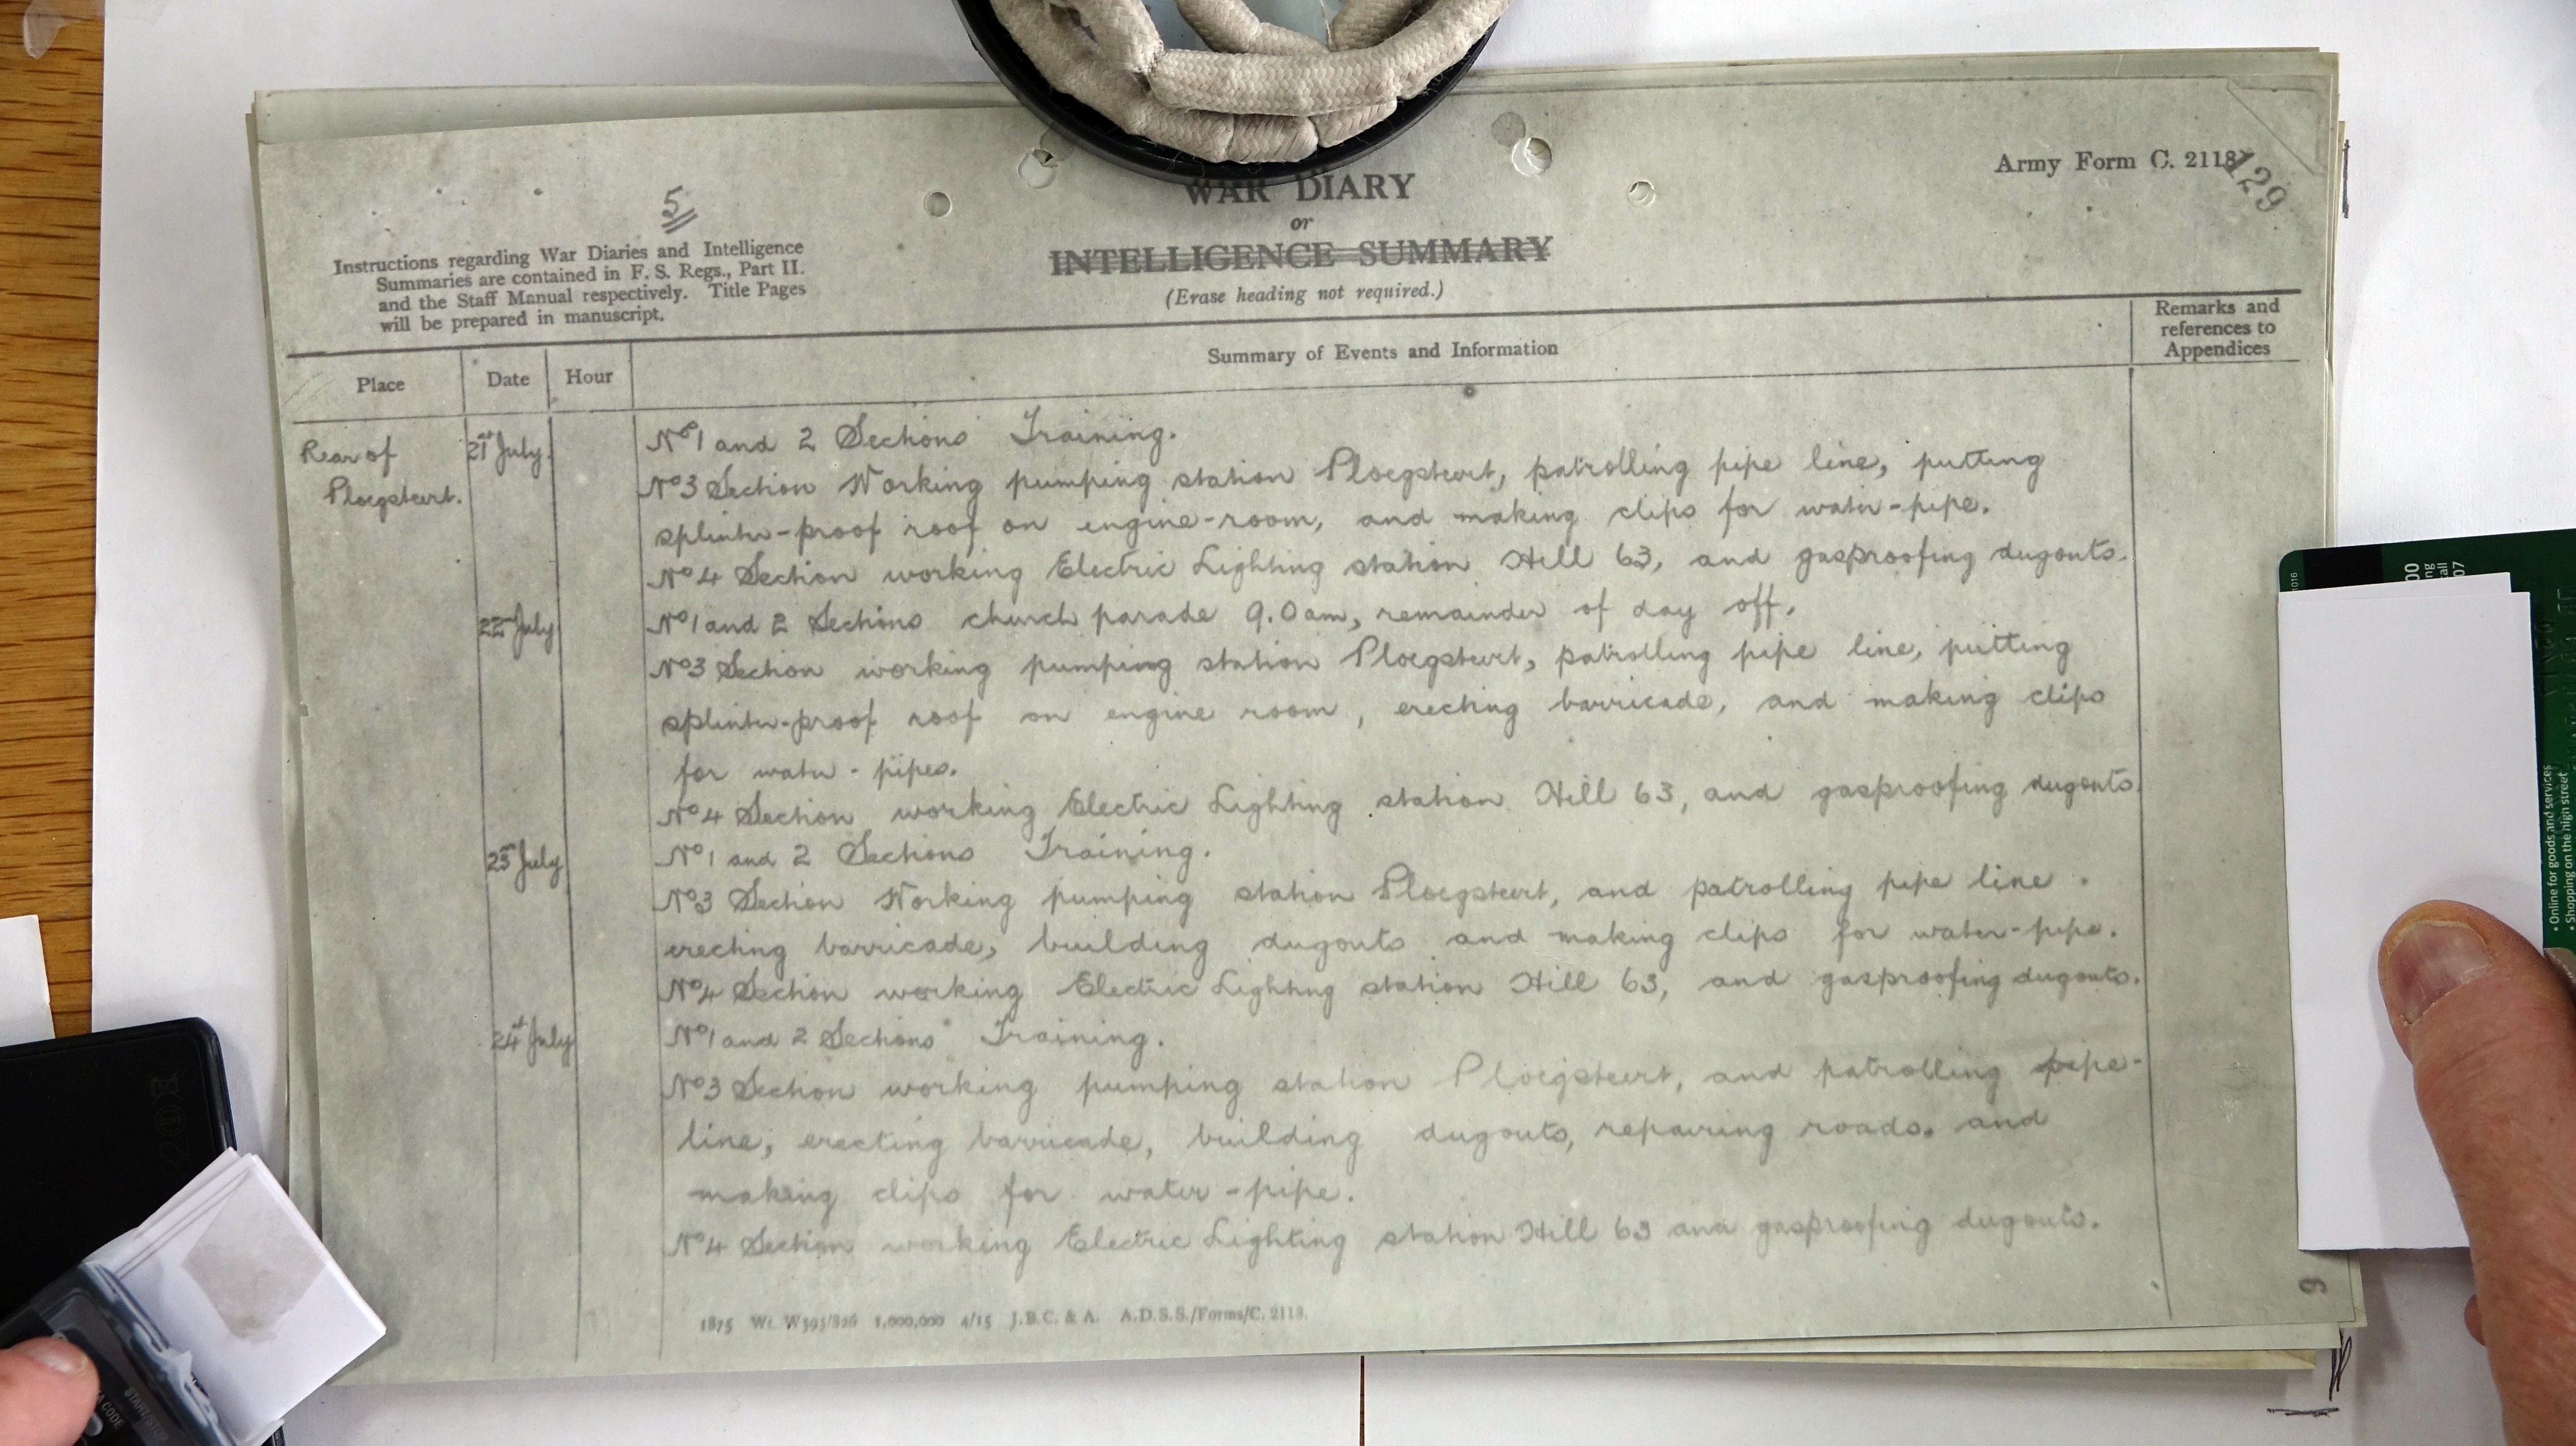 Army Form C. 2118.
129
5
WAR DIARY
or
INTELLIGENCE SUMMARY
(Erase heading not required.)
Instructions regarding War Diaries and Intelligence
Summaries are contained in F. S. Regs., Part II.
and the Staff Manual respectively. Title Pages
will be prepared in manuscript.
Place
Date
Hour
Summary of Events and Information
Remarks and
references to
Appendices
Rear of
Ploegsteert.
21st July.
No 1 and 2 Sections Training.
No 3 Section Working pumping station Ploegsteert, patrolling pipe line, putting
splinter-proof roof on engine-room, and making clips for water-pipe.
No 4 Section working Electric Lighting station Hill 63, and gasproofing dugouts.
22nd July
No 1 and 2 Sections church parade 9.0am, remainder of day off.
No 3 Section working pumping station Ploegsteert, patrolling pipe line, putting
splinter-proof roof on engine room, erecting barricade, and making clips
for water-pipes.
No 4 Section working Electric Lighting station Hill 63, and gasproofing dugouts.
23rd July
No 1 and 2 Sections Training.
No 3 Section Working pumping station Ploegsteert, and patrolling pipe line.
erecting barricade, building dugouts and making clips for water-pipe.
No 4 Section working Electric Lighting station Hill 63, and gasproofing dugouts.
24st July
No 1 and 2 Sections Training.
No 3 Section working pumping station Ploegsteert, and patrolling pipe-
line, erecting barricade, building dugouts, repairing roads. and
making clips for water-pipe.
No 4 Section working Electric Lighting station Hill 63 and gasproofing dugouts.
1875 Wt. W593/826 1,000,000 4/15 J.B.C. & A. A.D.S.S./Forms/C. 2118.
• Online for goods and services
• Shopping on the high street